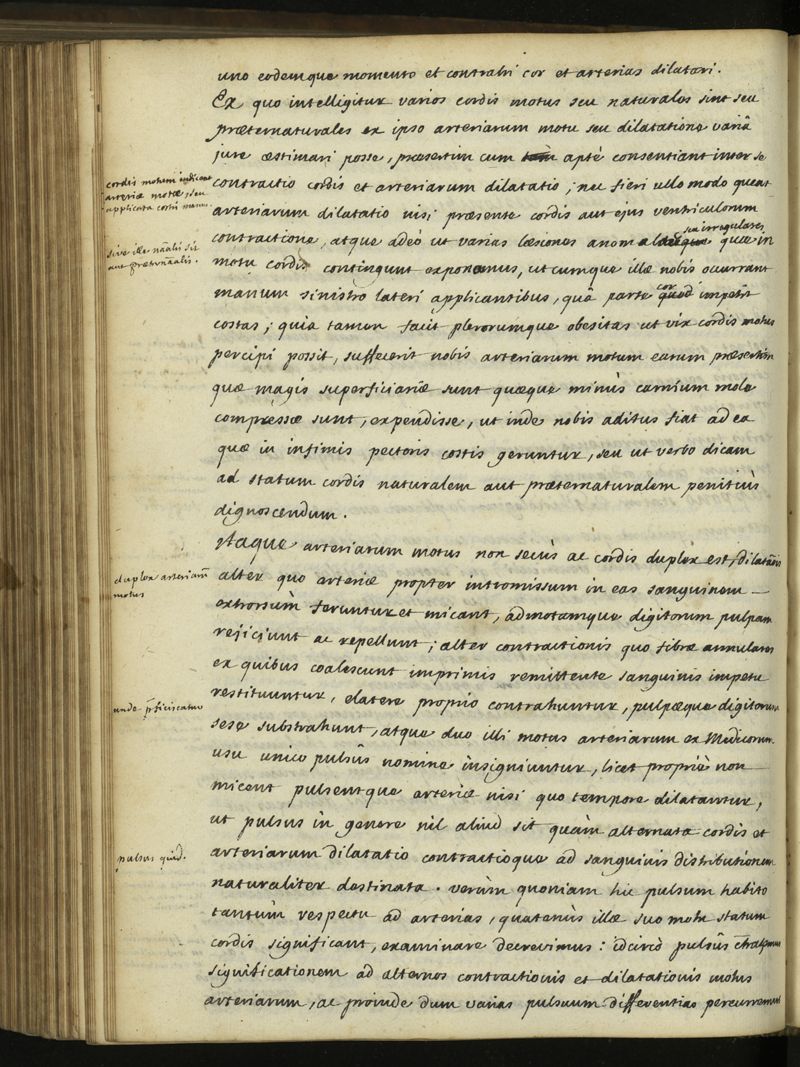 uno eodemque momento et contrahi cor et arterias dilatari.
Ex quo intelligitur varios cordis motus seu naturales sint seu
præternaturales ex ipso arteriarum motu seu dilatatione variâ
jure æstimari posse, præsertim cum aptè consentiant inter se
cordis motum indicant
arteriæ motæ, seu
applicata costis manus
contractio cordis et arteriarum dilatatio; nec fieri ullo modo queat
arteriarum dilatatio nisi præsente cordis aut ejus ventriculorum
seu irregulares
contractione, atque adeò ut varias læsiones anomalas quæ in
sive ille nãalis sit
aut prætnãalis.
motu cordis contingunt exponamus, utcumque illæ nobis occurrant
manum sinistro lateri applicantibus, quâ parte cor impetit
costas; quia tamen facit plerorumque obesitas ut vix cordis motus
percipi possit, suffecerit nobis arteriarum motum earum præsertim
quæ magis superficiariæ sunt quæque minùs carnium mole
compressæ sunt, expendisse, ut inde nobis aditus fiat ad ea
quæ in infimis pectoris costis geruntur, seu ut verbo dicam
ad statum cordis naturalem aut præternaturalem penitiùs
dignoscendum.
Itaque arteriarum motus non secùs ac cordis duplex est, dilatãois
duplex arteriarũ
motus
alter quo arteriæ propter intromissum in eas sanguinem
extrorsùm feruntur et micant, admotamque digitorum pulpam
rejiciunt ac repellunt; alter contractionis quo fibræ annulares
ex quibus coalescunt imprimis remittente sanguinis impetu
unde pficiscatur
restituuntur, elatere proprio contrahuntur, pulpæque digitorum
sese substrahunt, atque duo illi motus arteriarum ex Medicorum
usu unico pulsûs nomine insigniuntur, licet propriè non
micent pulsentque arteriæ nisi quo tempore dilatantur,
ut pulsus in genere nil aliud sit quàm alternata cordis et
pulsus quid.
arteriarum dilatatio contractioque ad sanguinis distributionem
naturaliter destinata. verùm quoniam hic pulsum habito
tantùm respectu ad arterias, quatenùs illæ suo motu statum
cordis significant, examinare decrevimus: idcircò pulsûs
significationem ad alternos contractionis et dilatationis motus
arteriarum, ac proinde dum varias pulsuum differentias percurremus